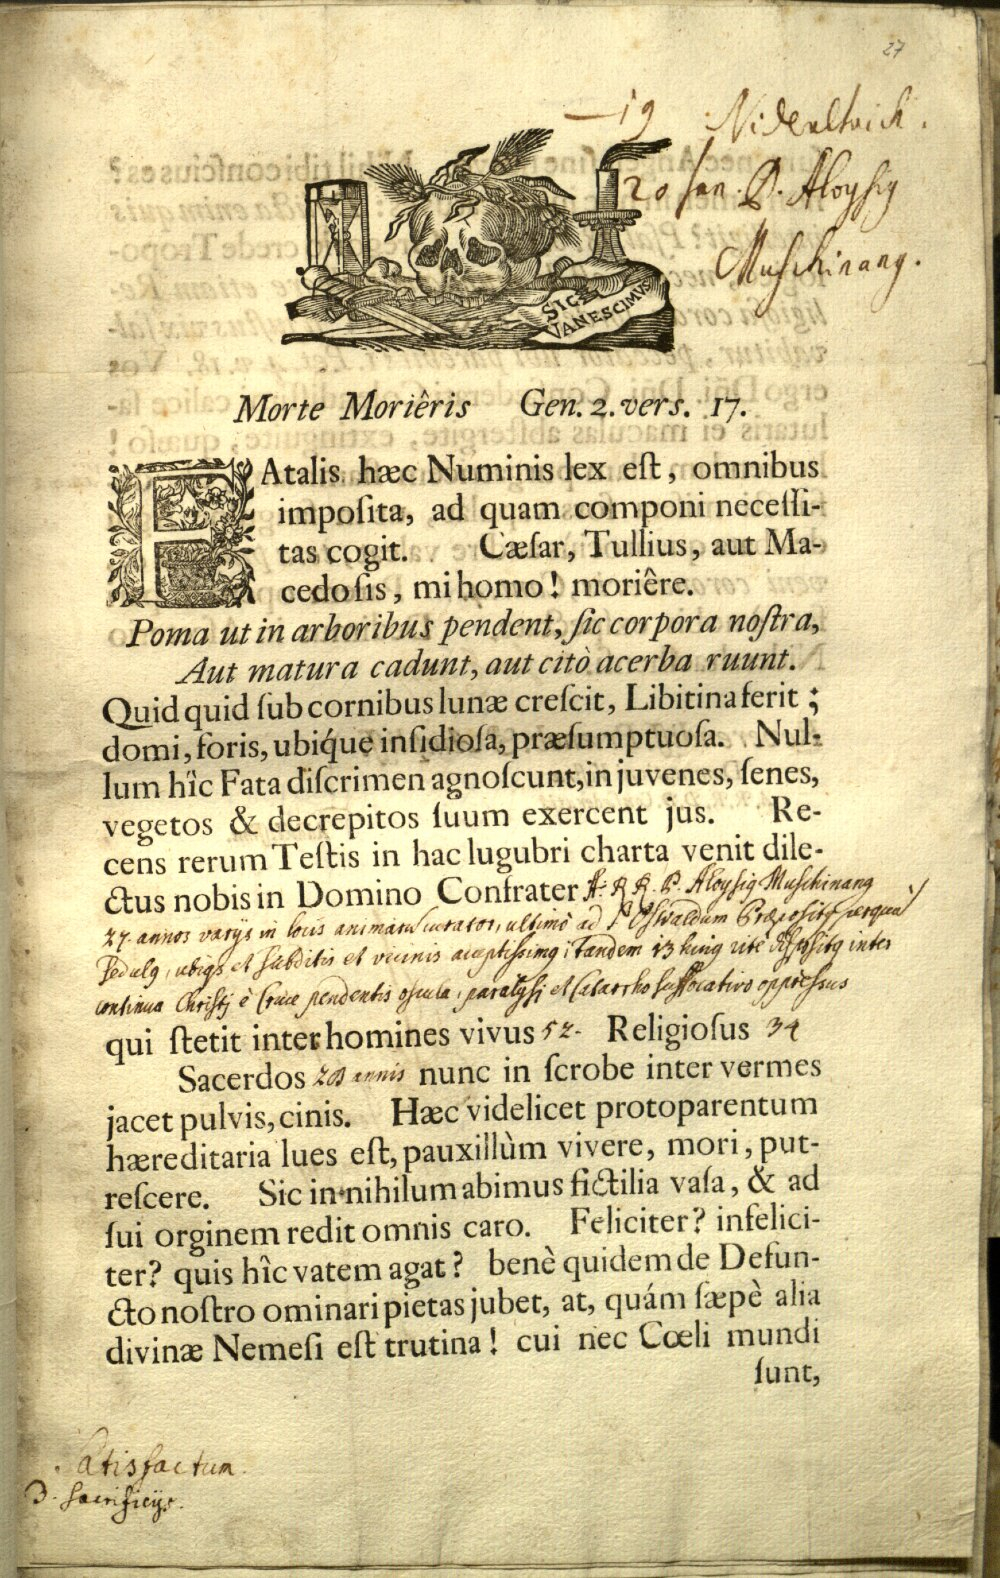 27
19 Nideraltaich.
20 Jan. P. Aloysig
Muschinang.
SIC
VANESCIMUS
Morte Moriêris Gen. 2. vers. 17.
FAtalis hæc Numinis lex eſt, omnibus
impoſita, ad quam componi neceſſi-
tas cogit. Cæſar, Tullius, aut Ma-
cedo ſis, mi homo! moriêre.
Poma ut in arboribus pendent, ſic corpora noſtra,
Aut matura cadunt, aut citò acerba ruunt.
Quid quid ſub cornibus lunæ creſcit, Libitina ferit;
domi, foris, ubiq́ue inſidioſa, præſumptuoſa. Nul-
lum hîc Fata diſcrimen agnoſcunt, in juvenes, ſenes,
vegetos & decrepitos ſuum exercent jus. Re-
cens rerum Teſtis in hac lugubri charta venit dile-
ctus nobis in Domino Confrater A. R. R. P. Aloysig Muschinang
27. annos varijs in locis animarum curator, ultimò ad S. Oswaldum Præpositg perquam
sedulg, ubiqs et subditis et vicinis acceptissimg; tandem 13 hujg ritè dispositg inter
continua Christj è Cruce pendentis oscula, paralysj et Catarrho suffocativo oppressus
qui ſtetit inter homines vivus 52. Religioſus 34
Sacerdos 28 annis nunc in ſcrobe inter vermes
jacet pulvis, cinis. Hæc videlicet protoparentum
hæreditaria lues eſt, pauxillùm vivere, mori, put-
reſcere. Sic in nihilum abimus fictilia vaſa, & ad
ſui orginem redit omnis caro. Feliciter? infelici-
ter? quis hîc vatem agat? benè quidem de Defun-
cto noſtro ominari pietas jubet, at, quám ſæpè alia
divinæ Nemeſi eſt trutina! cui nec Cœli mundi
ſunt,
Satisfactum.
3. sacrificijs.